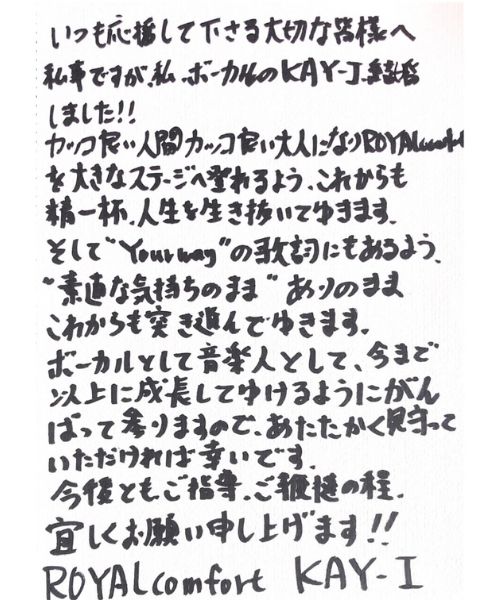 いつも応援して下さる大切な皆様へ
私事ですが、私、ボーカルのKAY-I、結婚
しました!!
カッコ良い人間のカッコ良い大人になりROYALcomfort
を大きなステージへ登れるよう、これからも
精一杯、人生を生き抜いてゆきます。
そして"Your way"の歌詞にもあるよう、
"素直な気持ちのまま"ありのまま
これからも突き進んでゆきます。
ボーカルとして音楽人として、今まで
以上に成長してゆけるようにがん
ばって参りますので、あたたかく見守って
いただければ幸いです。
今後ともご指導、ご鞭撻の程、
宜しくお願い申し上げます!!
ROYALcomfort KAY-I